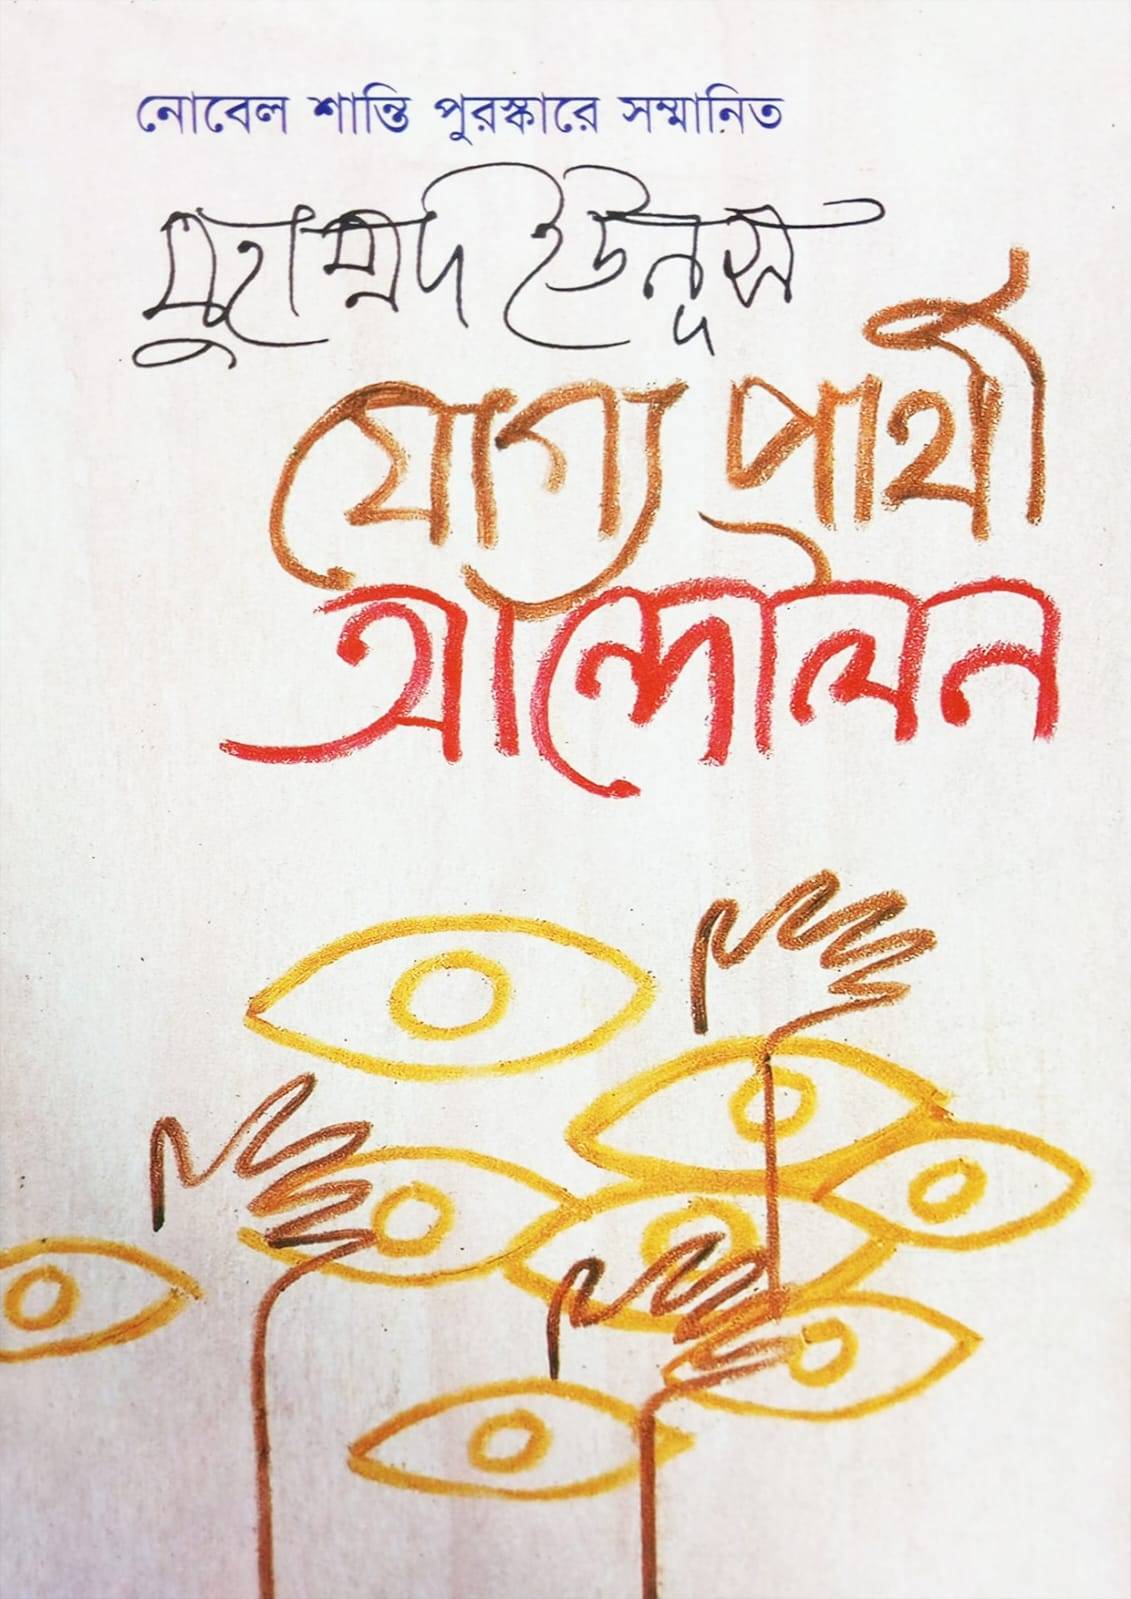 নোবেল শান্তি পুরস্কারে সম্মানিত
মুহাম্মদ ইউনূস
যোগ্য প্রার্থী
আন্দোলন